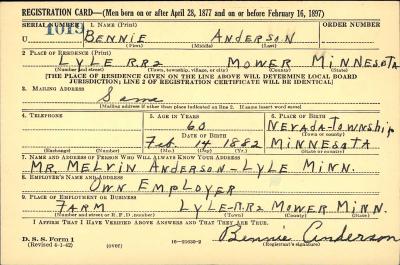 REGISTRATION CARD—(Men born on or after April 28, 1877 and on or before February 16, 1897)
SERIAL NUMBER 1. NAME (Print)
U 1019 BENNIE ANDERSON
(First) (Middle) (Last)
2. PLACE OF RESIDENCE (Print)
LYLE RR2 MOWER MINNESOTA
(Number and street) (Town, township, village, or city) (County) (State)
[THE PLACE OF RESIDENCE GIVEN ON THE LINE ABOVE WILL DETERMINE LOCAL BOARD
JURISDICTION; LINE 2 OF REGISTRATION CERTIFICATE WILL BE IDENTICAL]
3. MAILING ADDRESS
Same
[Mailing address if other than place indicated on line 2. If same insert word same]
4. TELEPHONE 5. AGE IN YEARS 6. PLACE OF BIRTH
60 NEVADA-TOWNSHIP
DATE OF BIRTH (Town or county)
Feb. 14 1882 MINNESOTA
(Exchange) (Number) (Mo.) (Day) (Yr.) (State or country)
7. NAME AND ADDRESS OF PERSON WHO WILL ALWAYS KNOW YOUR ADDRESS
MR. MELVIN ANDERSON-LYLE MINN.
8. EMPLOYER'S NAME AND ADDRESS
OWN EMPLOYER
9. PLACE OF EMPLOYMENT OR BUSINESS
FARM LYLE-RR2 MOWER MINN.
(Number and street or R. F. D. number) (Town) (County) (State)
I AFFIRM THAT I HAVE VERIFIED ABOVE ANSWERS AND THAT THEY ARE TRUE.
D. S. S. Form 1
(Revised 4-1-42) (over) 16-21630-2 Bennie Anderson
(Registrant's signature)